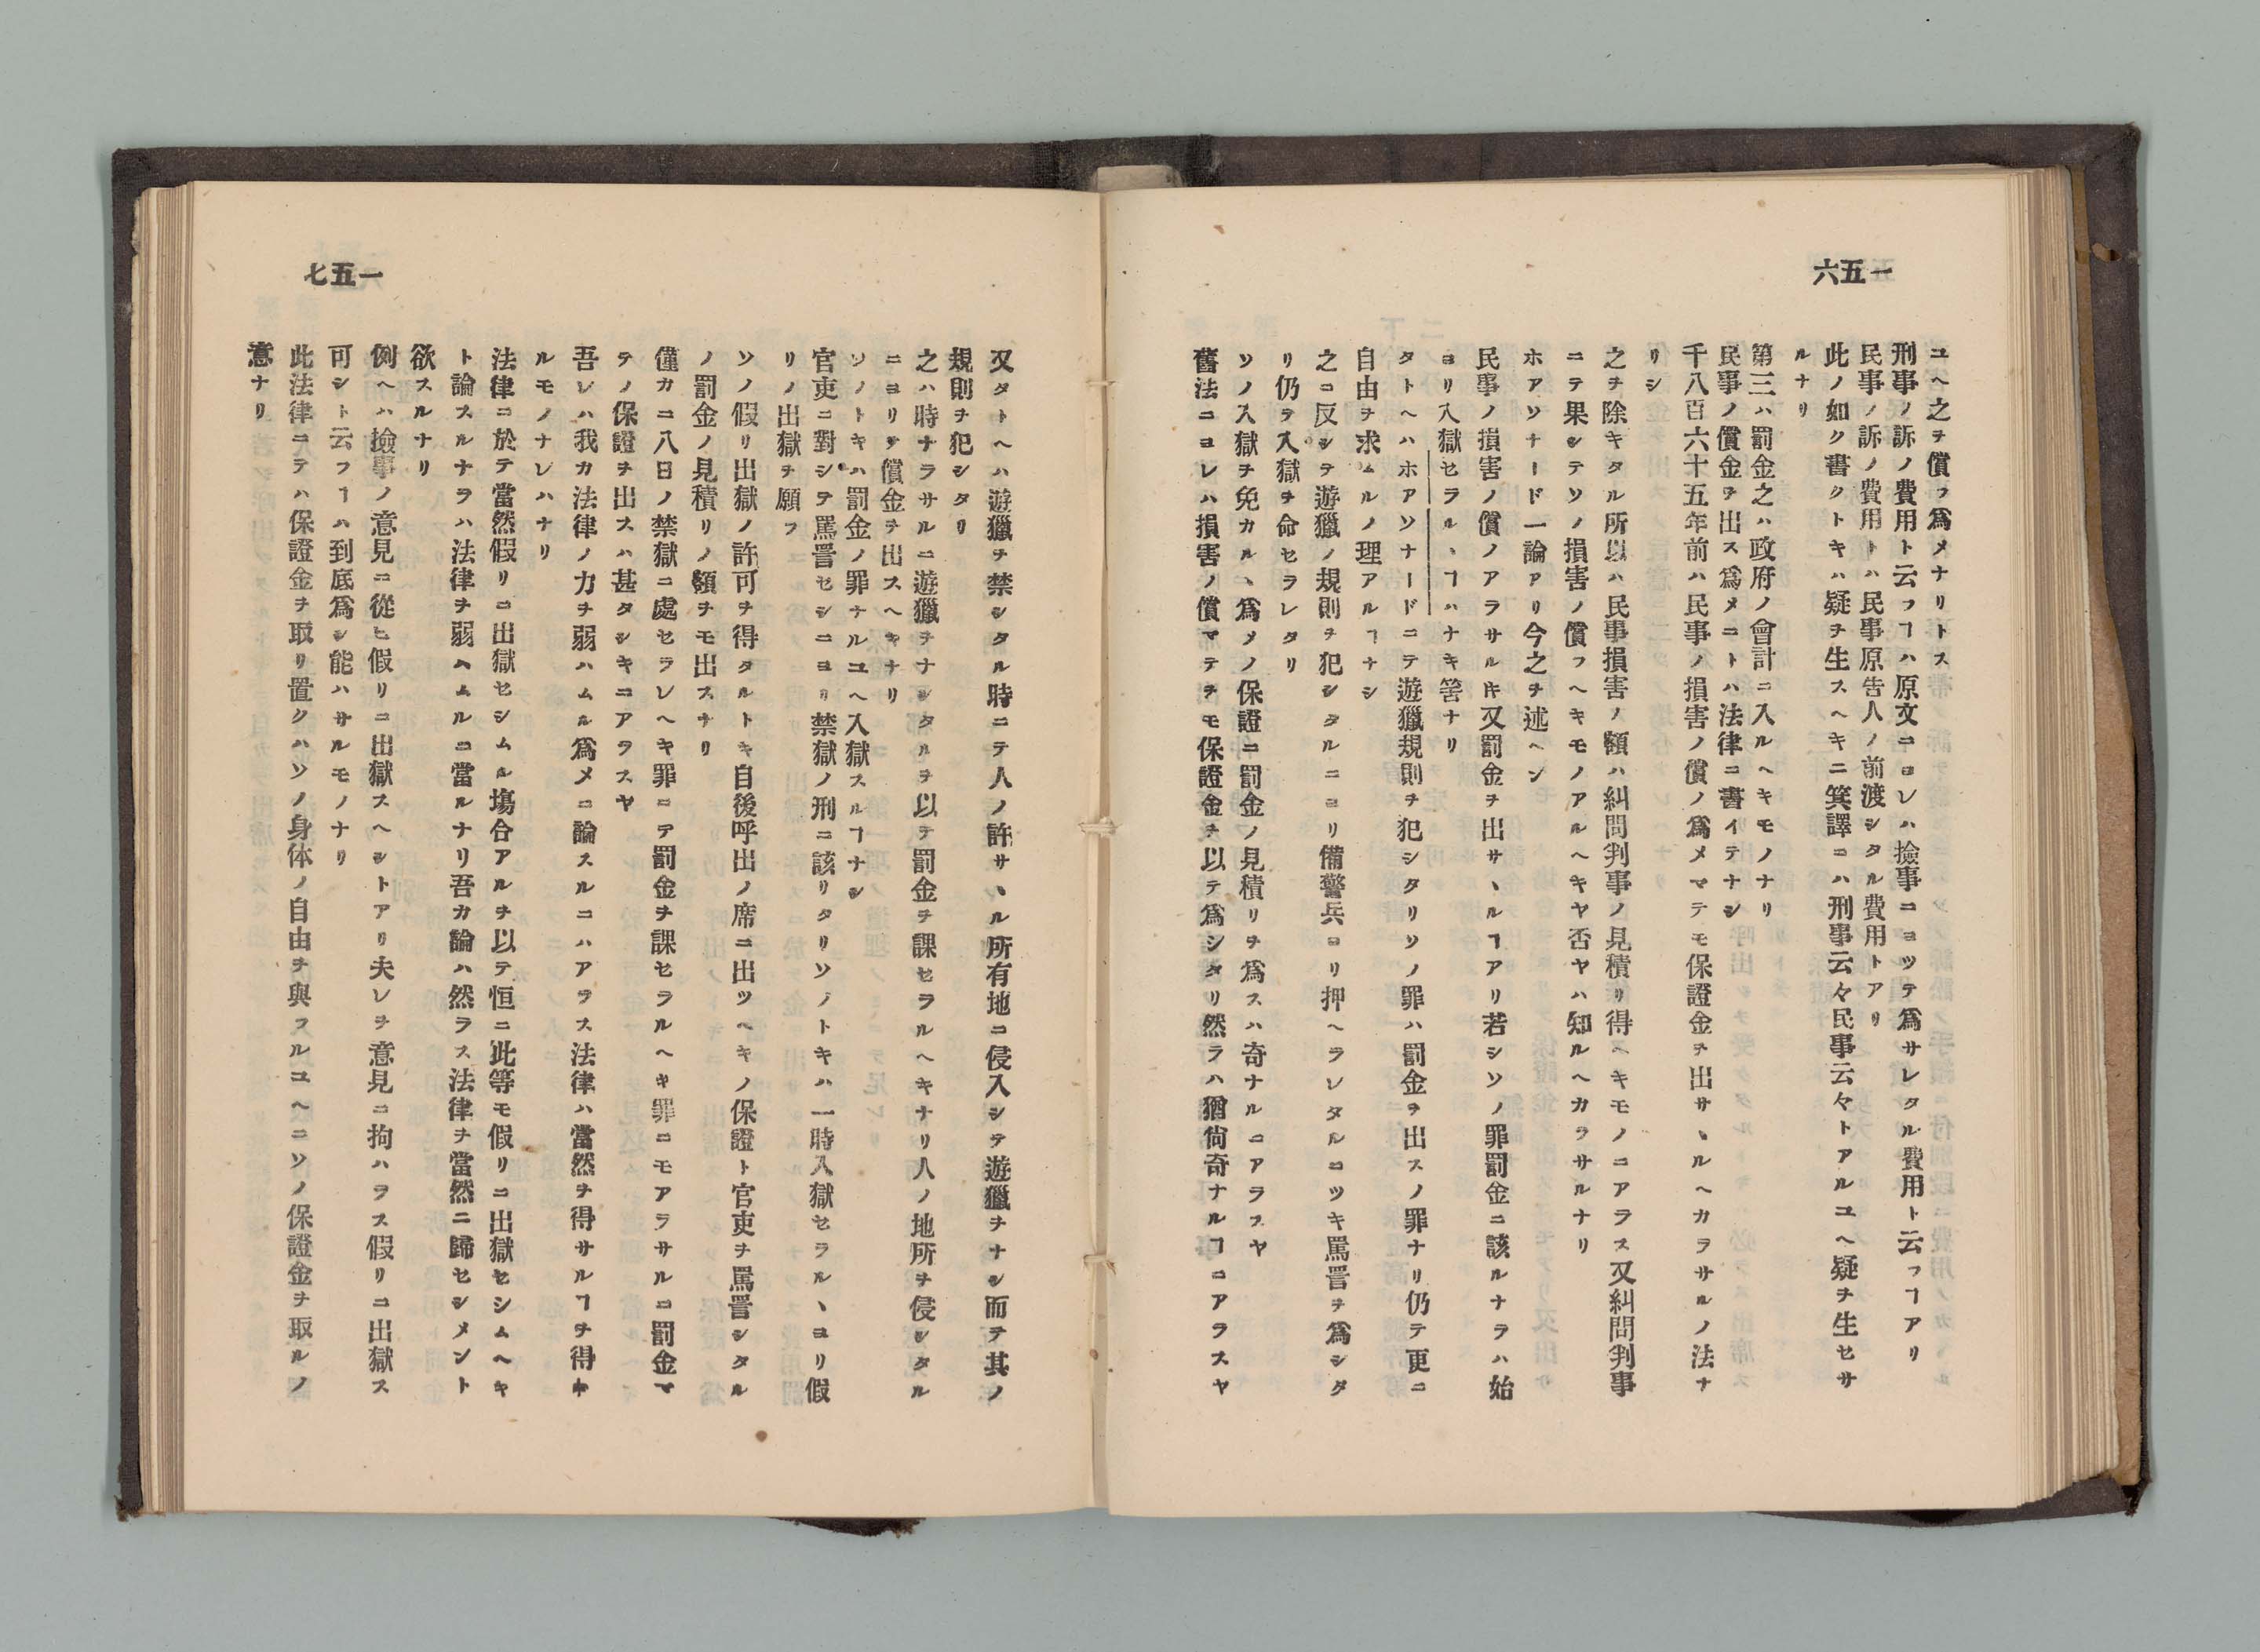 一五六
ユヘ之ヲ償フ爲メナリトス
刑事ノ訴ノ費用ト云フヿハ原文ニヨレハ撿事ニヨツテ爲サレタル費用ト云フヿアリ
民事ノ訴ノ費用トハ民事原告人ノ前渡シタル費用トアリ
此ノ如ク書クトキハ疑ヲ生スヘキニ箕譯ニハ刑事云々民事云々トアルユヘ疑ヲ生セサ
ルナリ
第三ハ罰金之ハ政府ノ會計ニ入ルヘキモノナリ
民事ノ償金ヲ出ス爲メニトハ法律ニ書イテナシ
千八百六十五年前ハ民事ノ損害ノ償ノ爲メマテモ保證金ヲ出サヽルヘカラサルノ法ナ
リシ
之ヲ除キタル所以ハ民事損害ノ額ハ糾問判事ノ見積リ得ヘキモノニアラス又糾問判事
ニテ果シテソノ損害ノ償フヘキモノアルヘキヤ否ヤハ知ルヘカラサルナリ
ホアソナード一論アリ今之ヲ述ヘン
民事ノ損害ノ償ノアラサルトキ又罰金ヲ出サヽルヿアリ若シソノ罪罰金ニ該ルナラハ始
ヨリ入獄セラルヽヿハナキ筈ナリ
タトヘハホアソナードニテ遊獵規則ヲ犯シタリソノ罪ハ罰金ヲ出スノ罪ナリ仍テ更ニ
自由ヲ求ムルノ理アルヿナシ
之ニ反シテ遊獵ノ規則ヲ犯シタルニヨリ備警兵ヨリ押ヘラレタルニツキ罵詈ヲ爲シタ
リ仍テ入獄ヲ命セラレタリ
ソノ入獄ヲ免カルヽ爲メノ保證ニ罰金ノ見積リヲ爲スハ奇ナルニアラスヤ
舊法ニヨレハ損害ノ償マテヲモ保證金ヲ以テ爲シタリ然ラハ猶尙奇ナルヿニアラスヤ
一五七
又タトヘハ遊獵ヲ禁シタル時ニテ人ノ許サヽル所有地ニ侵入シテ遊獵ヲナシ而テ其ノ
規則ヲ犯シタリ
之ハ時ナラサルニ遊獵ヲナシタルヲ以テ罰金ヲ課セラルヘキナリ人ノ地所ヲ侵シタル
ニヨリテ償金ヲ出スヘキナリ
ソノトキハ罰金ノ罪ナルユヘ入獄スルヿナシ
官吏ニ對シテ罵詈セシニヨリ禁獄ノ刑ニ該リタリソノトキハ一時入獄セラルヽヨリ假
リノ出獄ヲ願フ
ソノ假リ出獄ノ許可ヲ得タルトキ自後呼出ノ席ニ出ツヘキノ保證ト官吏ヲ罵詈シタル
ノ罰金ノ見積リノ額ヲモ出スナリ
僅カニ八日ノ禁獄ニ處セラレヘキ罪ニテ罰金ヲ課セラルヘキ罪ニモアラサルニ罰金マ
テノ保證ヲ出スハ甚タシキニアラスヤ
吾レハ我カ法律ノ力ヲ弱ハムル爲メニ論スルニハアラス法律ハ當然ヲ得サルヿヲ得サ
ルモノナレハナリ
法律ニ於テ當然假リニ出獄セシムル塲合アルヲ以テ恒ニ此等モ假リニ出獄セシムヘキ
ト論スルナラハ法律ヲ弱ヘムルニ當ルナリ吾カ論ハ然ラス法律ヲ當然ニ歸セシメント
欲スルナリ
例ヘハ撿事ノ意見ニ從ヒ假リニ出獄スヘシトアリ夫レヲ意見ニ拘ハラス假リニ出獄ス
可シト云フヿハ到底爲シ能ハサルモノナリ
此法律ニテハ保證金ヲ取リ置クハソノ身体ノ自由ヲ與フルユヘニソノ保證金ヲ取ルノ
意ナリ